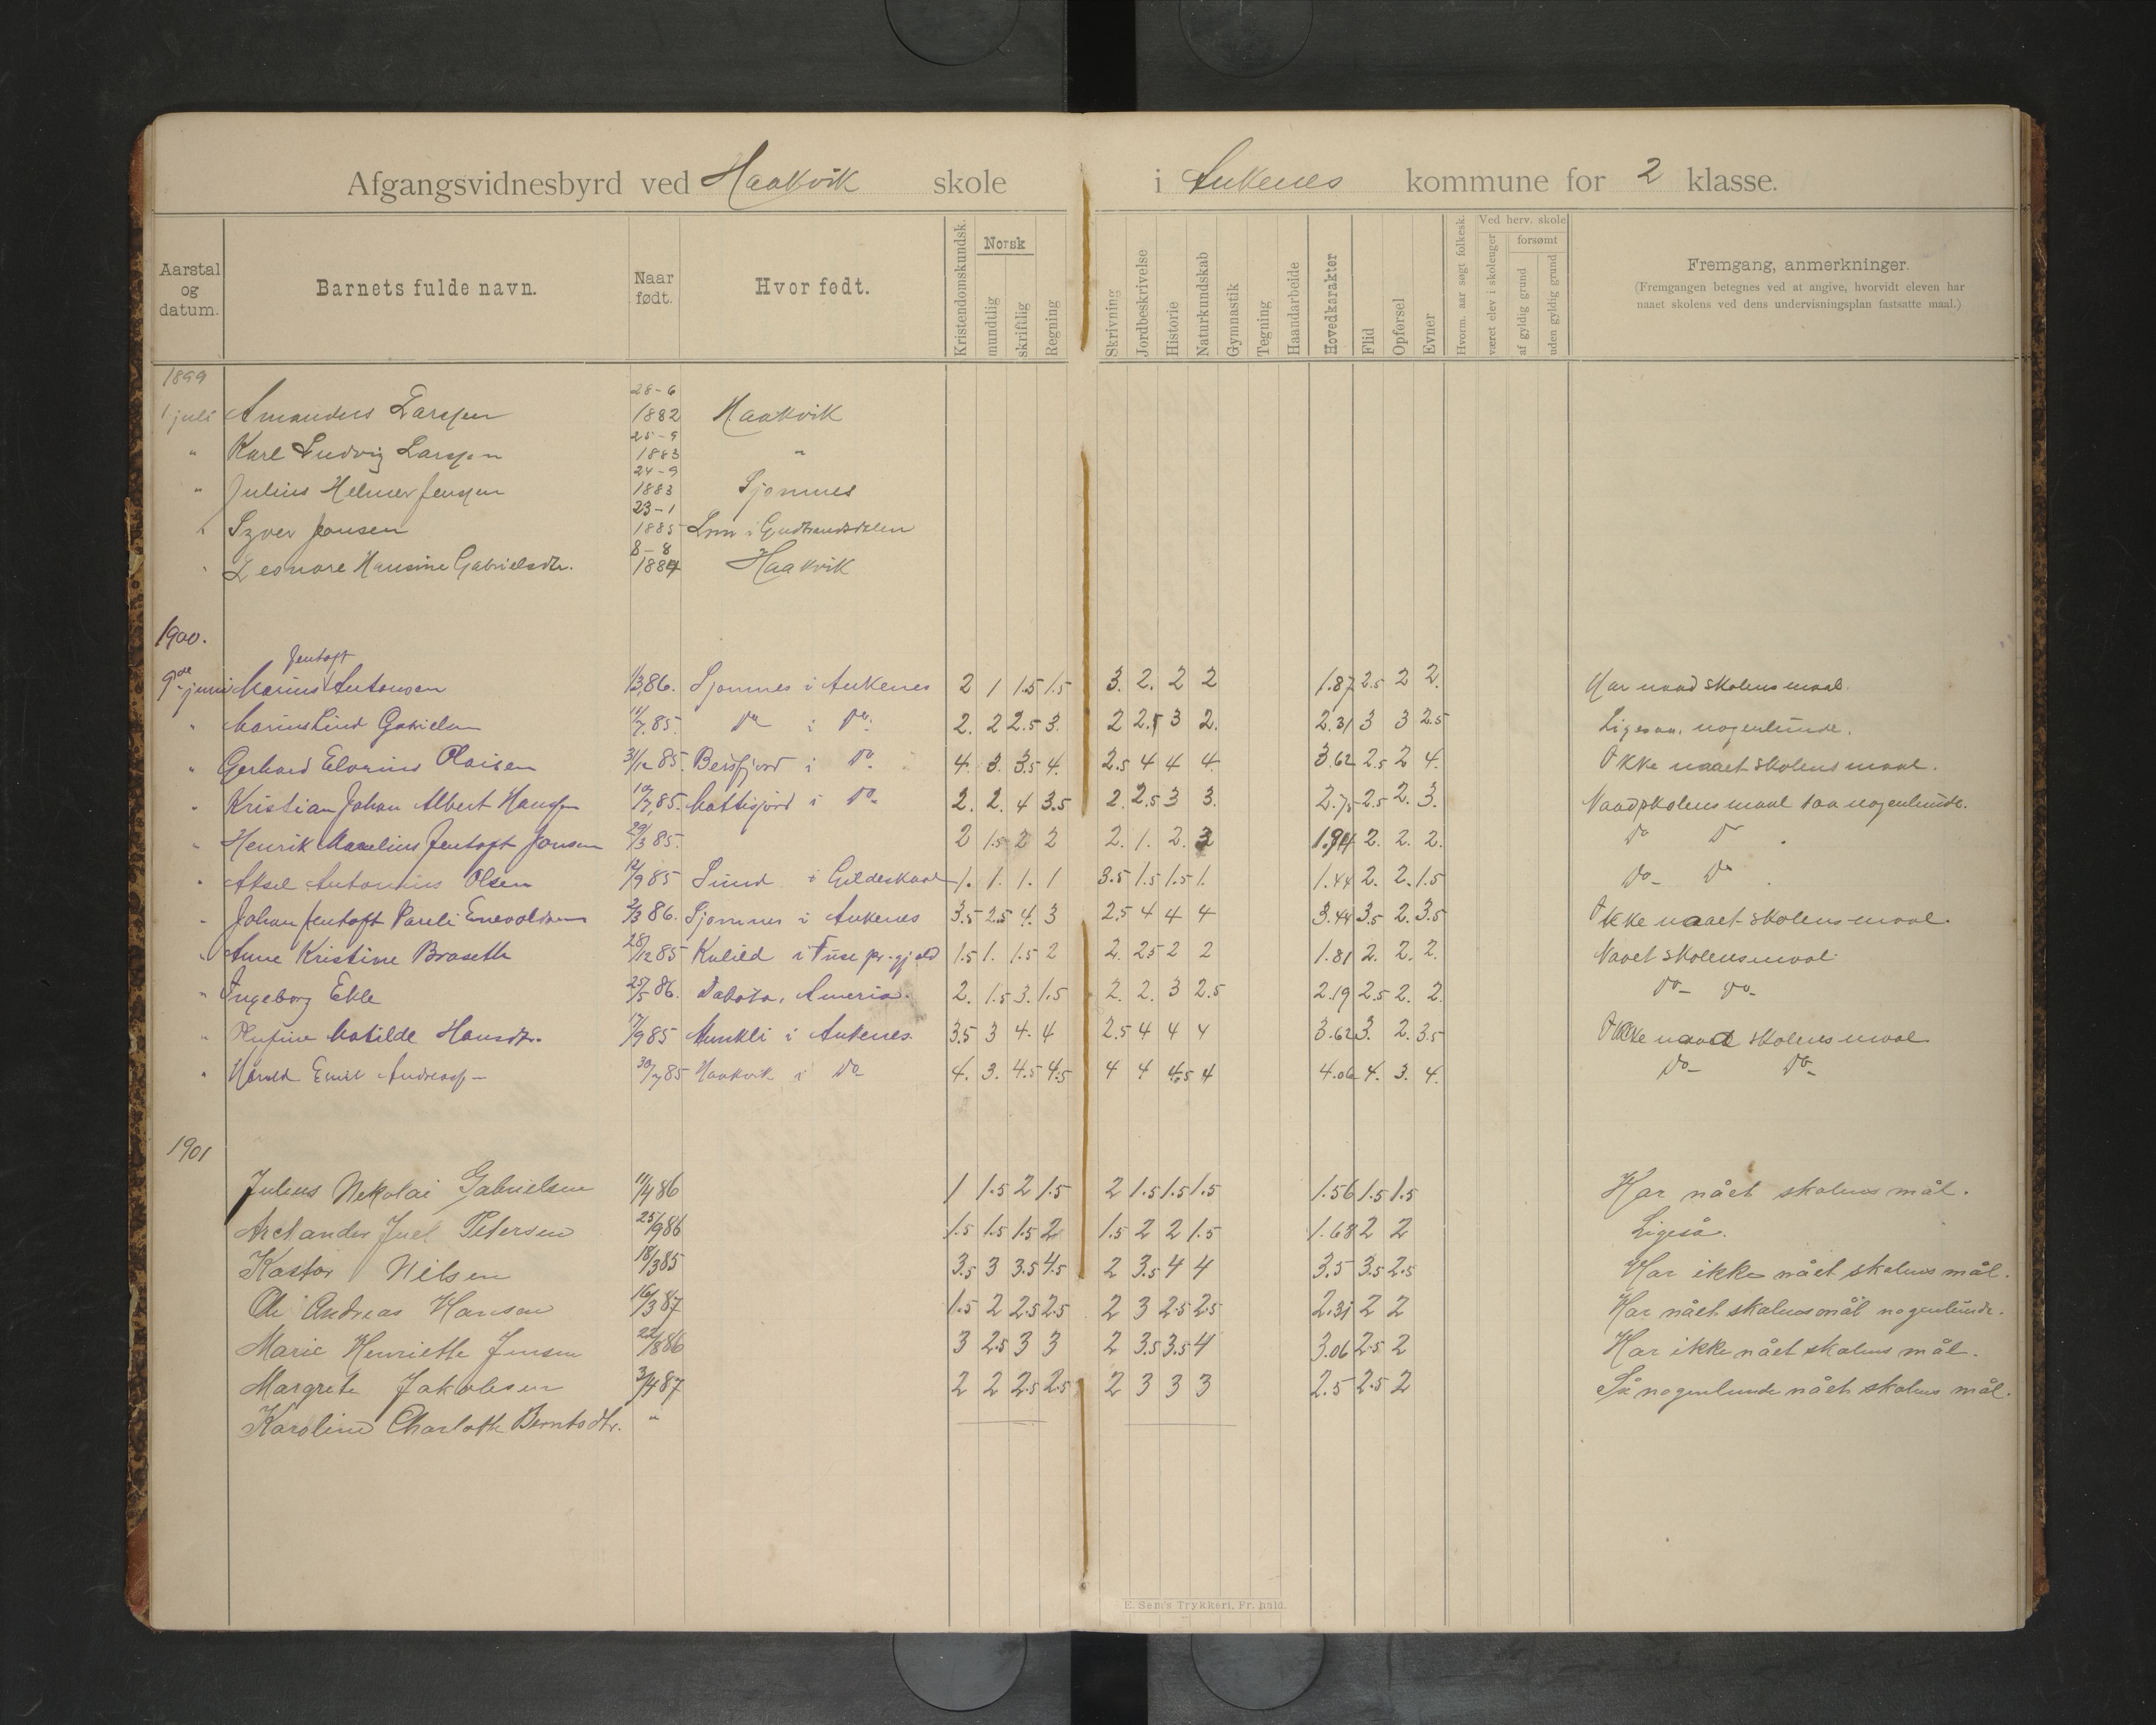 Afgangsvidnesbyrd ved Haakvik skole i Ankenes kommune for 2 klasse.
Aarstal og datum.
Barnets fulde navn.
Naar født.
Hvor født.
Kristendomskundsk.
Norsk
mundtlig
skriftlig
Regning
Skrivning
Jordbeskrivelse
Historie
Naturkundskab
Gymnastik
Tegning
Haandarbeide
Hovedkarakter
Flid
Opførsel
Evner
Hvorm. aar søgt folkesk.
Ved herv. skole
været elev i skoleuger
forsømt
af gyldig grund
uden gyldig grund
Fremgang, anmerkninger.
(Fremgangen betegnes ved at angive, hvorvidt eleven har
naaet skolens ved dens undervisningsplan fastsatte maal.)
1899
1 juli Amandus Larssen 28-6 1882 Haakvik
" Karl Ludvig Larssen 25-9 1883 "
" Julius Helmer Jenssen 24-9 1883 Sjomnes
Jonsen 23-1 1885 i Gudbrandsdalen
Leonore Hansine Gabrielsdtr. 8-8 1884 Haakvik
1900.
9de juni Marius Jentoft Antonsen 1/3 86. Sjomnes i Ankenes 2 1 1.5 1.5 3. 2. 2 2 1.87 2.5 2 2. Har naad skolens maal.
" Marius Lind Gabrielsen 11/7 85. Do i Do. 2. 2 2.5 3. 2 2.5 3 2. 2.31 3 3 2.5 Ligesaa, nogenlunde.
" Gerhard Olaisen 31/12 85. Beisfjord i Do. 4. 3. 3.5 4. 2.5 4 4 4. 3.62 2.5 2 4. Ikke naaet skolens maal.
" Kristian Johan Albert Hanssen 10/7 85. i Do. 2. 2. 4 3.5 2. 2.5 3 3. 2.75 2.5 2. 3. Naad skolens maal saa nogenlunde.
" Henrik Jentoft Jonsen 29/3 85. 2 1.5 2 2 2. 1. 2. 3 1.94 2. 2. 2. Do Do
" Aksel Antonius Olsen 12/9 85 Sund i Gildeskaal 1. 1. 1. 1 3.5 1.5 1.5 1. 1.44 2. 2. 1.5 Do Do
" Johan Jentoft Pauli Enevoldsen 2/3 86. Sjomnes i Ankenes 3.5 2.5 4. 3 2.5 4 4 4 3.44 3.5 2. 3.5 Ikke naaet skolens maal.
" Anne Kristine Braseth 28/12 85 i Fuse pr.gjeld 1.5 1. 1.5 2 2. 2.5 2 2 1.81 2. 2. 2. Naaet skolens maal.
" Ingeborg Ekle 25/5 86. Dakota, 2. 1.5 3. 1.5 2. 2. 3 2.5 2.19 2.5 2. 2. Do Do
" Rufine Matilde Hansdtr. 17/9 85 i Ankenes. 3.5 3 4. 4 2.5 4 4 4 3.62 3. 2. 3.5 Ikke naaet skolens maal
" Harald Emil 30/7 85 Haakvik i Do 4. 3. 4.5 4.5 4 4 4.5 4 4.06 4. 3. 4. Do Do
1901
Julius Nikolai Gabrielsen 11/4 86 1 1.5 2 1.5 2 1.5 1.5 1.5 1.56 1.5 1.5 Har nået skolens mål.
Arctander Juel Petersen 25/9 86 1.5 1.5 1.5 2 1.5 2 2 1.5 1.68 2 2 Ligeså.
Kastor Nilsen 18/3 85 3.5 3 3.5 4.5 2 3.5 4 4 3.5 3.5 2.5 Har ikke nået skolens mål.
Ole Andreas Hansen 16/3 87 1.5 2 2.5 2.5 2 3 2.5 2.5 2.31 2 2 Har nået skolens mål nogenlunde.
Marie Henriette Jensen 22/8 86 3 2.5 3 3 2 3.5 3.5 4 3.06 2.5 2 Har ikke nået skolens mål.
Margrete Jakobsen 3/4 87 2 2 2.5 2.5 2 3 3 3 2.5 2.5 2 Så nogenlunde nået skolens mål.
Karoline Charlotte Berntsdtr. "
E. Sem's Trykkeri, Fr.hald.